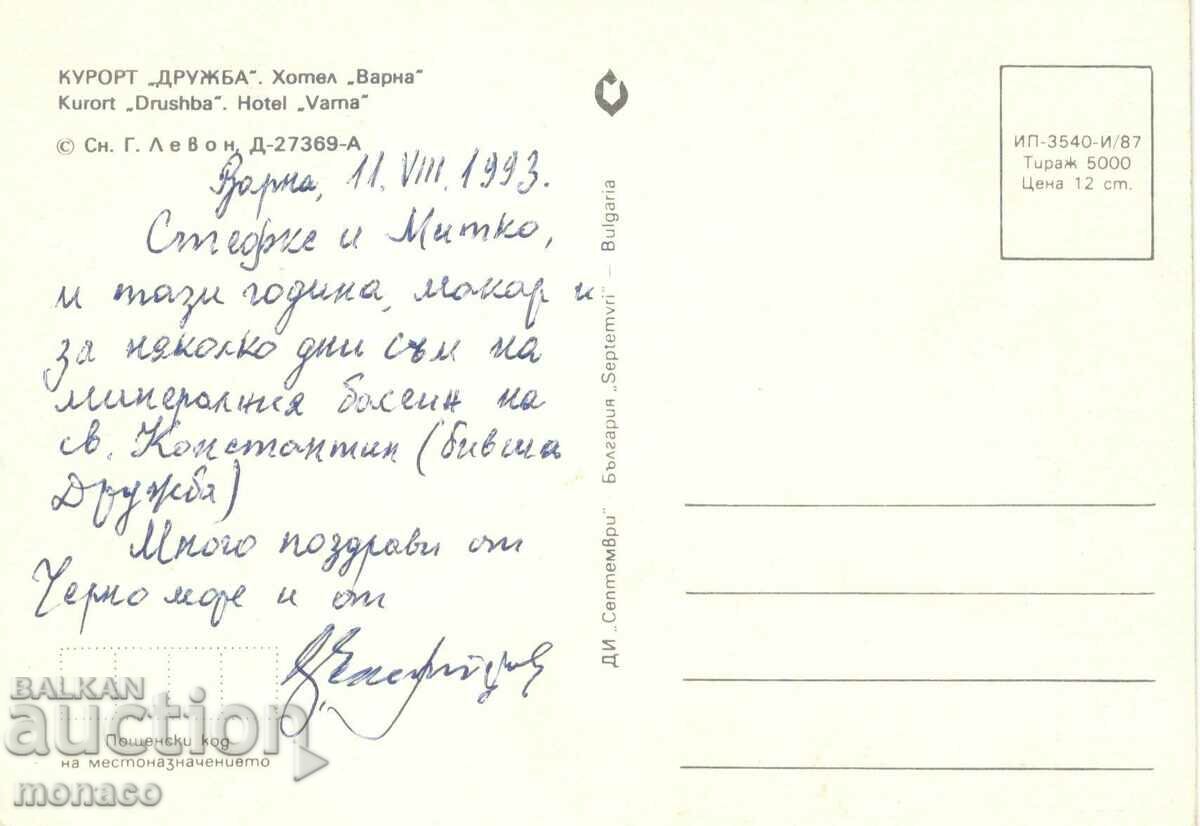 КУРОРТ „ДРУЖБА". Хотел „Варна"
Kurort „Drushba". Hotel „Varna"
© Сн. Г. Левон, Д-27369-А
Варна, 11. VIII. 1993.
Стефке и Митко,
и тази година, макар и
за няколко дни съм на
минералния басеин на
св. Константин (бивша
Дружба)
Много поздрави от
Черно море и от
Пощенски код
на местоназначението
ДИ „Септември" · България „Septemvri" — Bulgaria
ИП-3540-И/87
Тираж 5000
Цена 12 ст.
BALKAN
auction
monaco